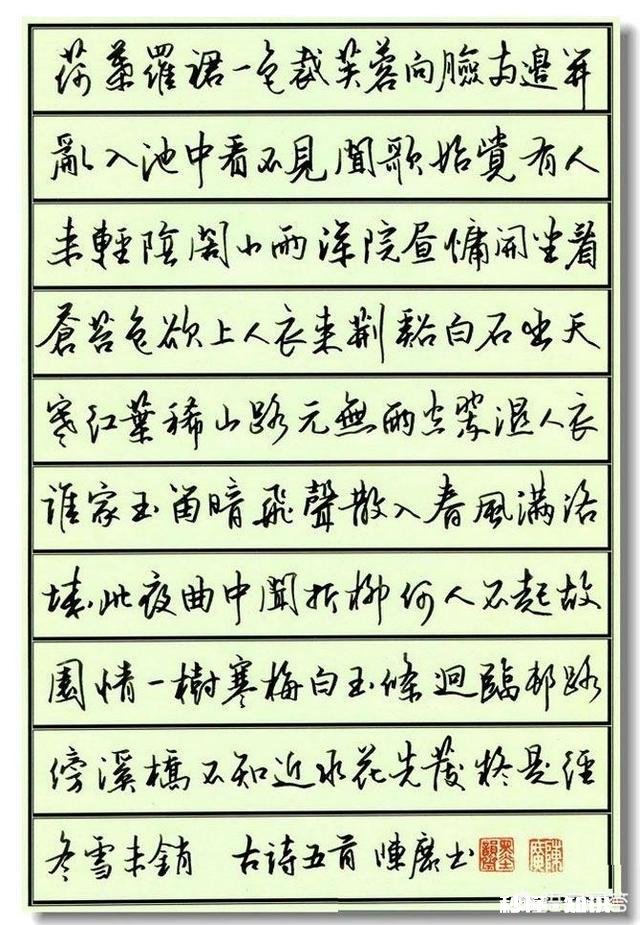 荷葉羅裙一色裁芙蓉向臉两邊開
亂入池中看不見聞歌始覺有人
来輕陰閣小雨深院昼慵開坐看
蒼苔色欲上人衣来荆谿白石出天
寒紅葉稀山路元無雨空翠濕人衣
誰家玉笛暗飛聲散入春風滿洛
城此夜曲中聞折柳何人不起故
園情一樹寒梅白玉條迥臨邨路
傍溪橋不知近水花先發疑是經
冬雪未銷 古诗五首 陳书